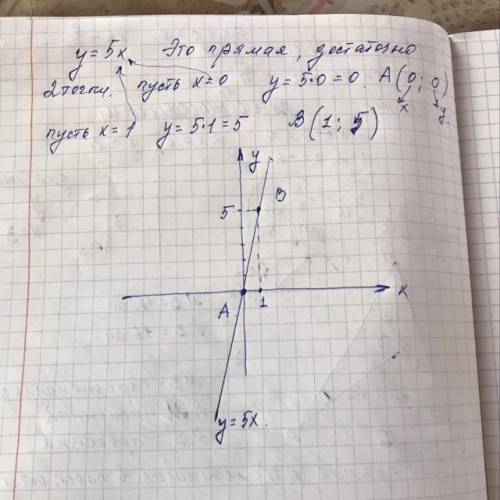 y = 5x Это прямая, достаточно
2 точки. пусть x=0 y = 5·0 = 0. A(0; 0)
x y
пусть x = 1 y = 5·1 = 5 B(1; 5)
y
B
5
A 1 x
y = 5x.